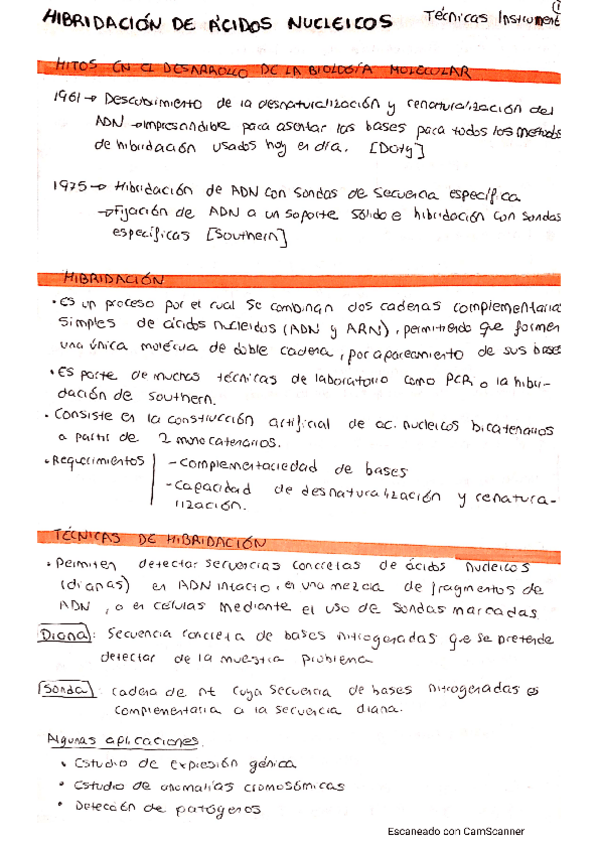 HIBRIDACIÓN DE ÁCIDOS NUCLEICOS Técnicas Instrument 1
HITOS EN EL DESARROLLO DE LA BIOLOGÍA MOLECULAR
1961 → Descubrimiento de la desnaturalización y renaturalización del
ADN → imprescindible para asentar las bases para todos los métodos
de hibridación usados hoy en día. [Doty]
1975 → Hibridación de ADN con sondas de secuencia específica
→ Fijación de ADN a un soporte sólido e hibridación con sondas
específicas [Southern]
HIBRIDACIÓN
• Es un proceso por el cual se combinan dos cadenas complementaria
simples de ácidos nucleidos (ADN y ARN), permitiendo que formen
una única molécula de doble cadena, por apareamiento de sus base
• Es parte de muchas técnicas de laboratorio como PCR o la hibri-
dación de southern.
• Consiste en la construcción artificial de ac. nucleicos bicatenarios
a partir de 2 monocatenarios.
• Requerimientos - Complementariedad de bases
- Capacidad de desnaturalización y renatura-
lización.
TÉCNICAS DE HIBRIDACIÓN
• Permiten detectar secuencias concretas de ácidos nucleicos
(dianas) en ADN intacto, en una mezcla de fragmentos de
ADN, o en células mediante el uso de sondas marcadas
Diana: Secuencia concreta de bases nitrogenadas que se pretende
detectar de la muestra problema
Sonda: cadena de nt cuya secuencia de bases nitrogenadas es
complementaria a la secuencia diana.
Algunas aplicaciones.
• Estudio de expresión génica
• Estudio de anomalías cromosómicas
• Detección de patógenos
Escaneado con CamScanner